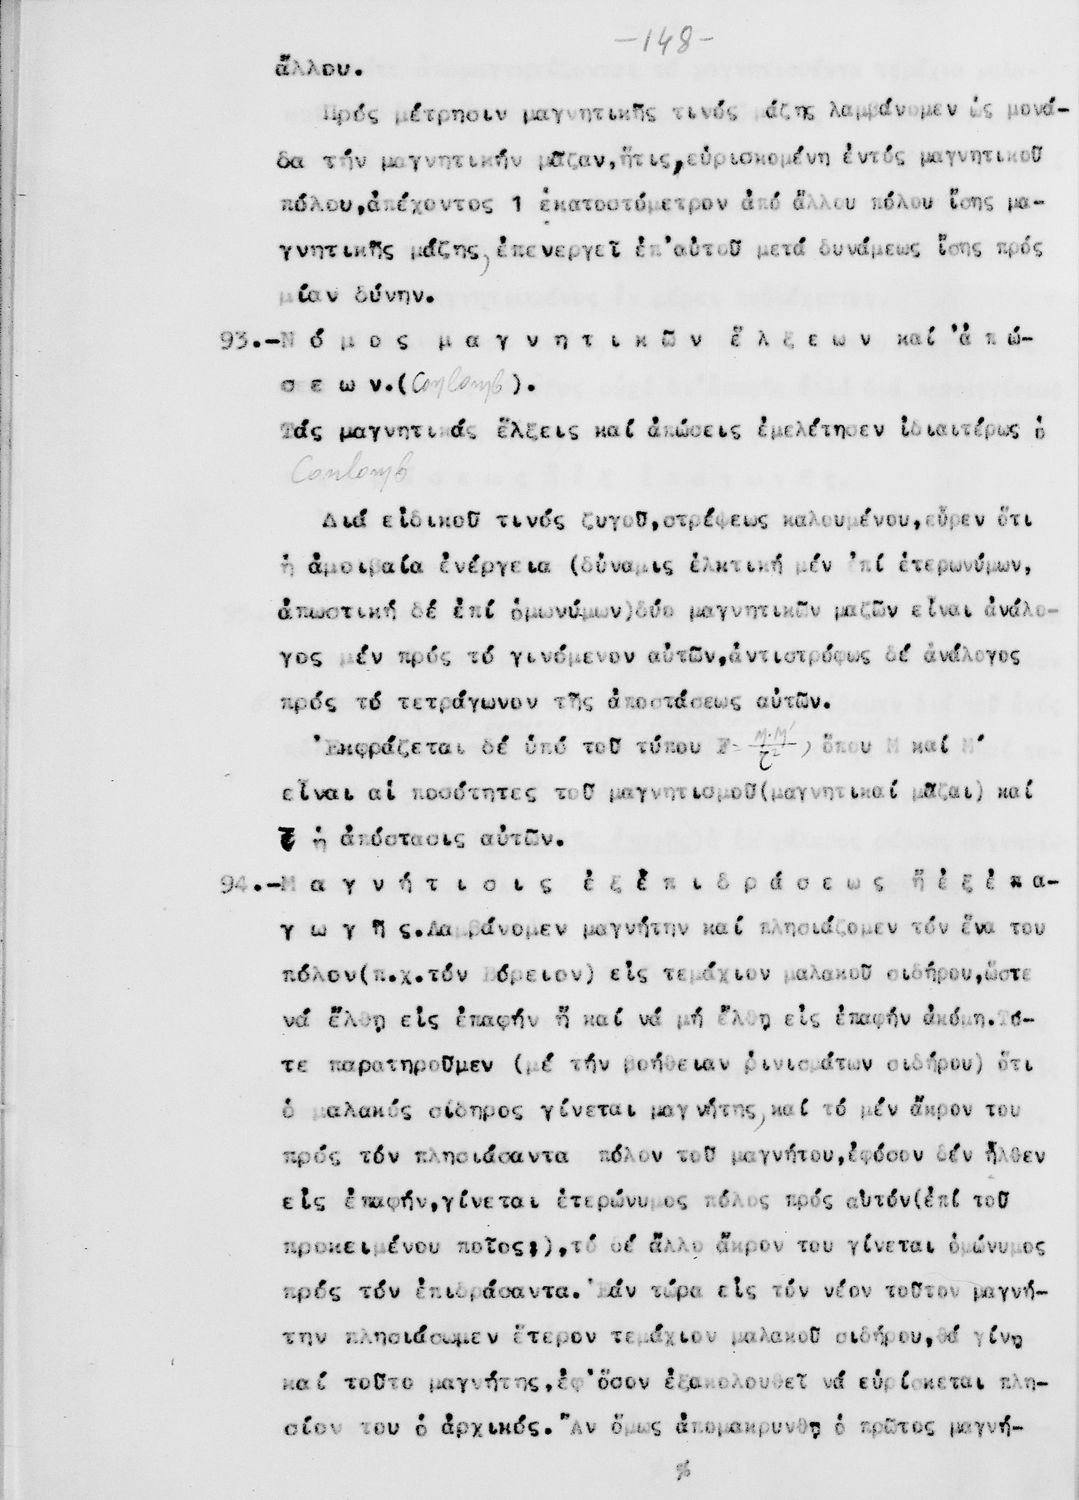 -148-
ἄλλου.
Πρός μέτρησιν μαγνητικῆς τινός μάζης λαμβάνομεν ὡς μονά-
δα τήν μαγνητικήν μᾶζαν,ἥτις,εὑρισκομένη ἐντός μαγνητικοῦ
πόλου,ἀπέχοντος 1 ἑκατοστόμετρον ἀπό ἄλλου πόλου ἴσης μα-
γνητικῆς μάζης,ἐπενεργεῖ ἐπ'αὐτοῦ μετά δυνάμεως ἴσης πρός
μίαν δύνην.
93.-Ν ό μ ο ς μ α γ ν η τ ι κ ῶ ν ἕ λ ξ ε ω ν καί ἀ π ώ-
σ ε ω ν.(Coulomb).
Τάς μαγνητικάς ἕλξεις καί ἀπώσεις ἐμελέτησεν ἰδιαιτέρως ὁ
Coulomb
Διά εἰδικοῦ τινός ζυγοῦ,στρέψεως καλουμένου,εὗρεν ὅτι
ἡ ἀμοιβαία ἐνέργεια (δύναμις ἑλκτική μέν ἐπί ἑτερωνύμων,
ἀπωστική δέ ἐπί ὁμωνύμων)δύο μαγνητικῶν μαζῶν εἶναι ἀνάλο-
γος μέν πρός τό γινόμενον αὐτῶν,ἀντιστρόφως δέ ἀνάλογος
πρός τό τετράγωνον τῆς ἀποστάσεως αὐτῶν.
Ἐκφράζεται δέ ὑπό τοῦ τύπου F= M·M'/τ², ὅπου Μ καί Μ'
εἶναι αἱ ποσότητες τοῦ μαγνητισμοῦ(μαγνητικαί μᾶζαι) καί
τ ἡ ἀπόστασις αὐτῶν.
94.-Μ α γ ν ή τ ι σ ι ς ἐ ξ ἐ π ι δ ρ ά σ ε ω ς ἤ ἐ ξ ἐ π α-
γ ω γ ῆ ς.Λαμβάνομεν μαγνήτην καί πλησιάζομεν τόν ἕνα του
πόλον(π.χ.τόν Βόρειον) εἰς τεμάχιον μαλακοῦ σιδήρου,ὥστε
νά ἔλθῃ εἰς ἐπαφήν ἤ καί νά μή ἔλθῃ εἰς ἐπαφήν ἀκόμη.Τό-
τε παρατηροῦμεν (μέ τήν βοήθειαν ῥινισμάτων σιδήρου) ὅτι
ὁ μαλακός σίδηρος γίνεται μαγνήτης,καί τό μέν ἄκρον του
πρός τόν πλησιάσαντα πόλον τοῦ μαγνήτου,ἐφόσον δέν ἦλθεν
εἰς ἐπαφήν,γίνεται ἑτερώνυμος πόλος πρός αὐτόν(ἐπί τοῦ
προκειμένου ποῖος;),τό δέ ἄλλο ἄκρον του γίνεται ὁμώνυμος
πρός τόν ἐπιδράσαντα. Ἐάν τώρα εἰς τόν νέον τοῦτον μαγνή-
την πλησιάσωμεν ἕτερον τεμάχιον μαλακοῦ σιδήρου,θά γίνῃ
καί τοῦτο μαγνήτης,ἐφ'ὅσον ἐξακολουθεῖ νά εὑρίσκεται πλη-
σίον του ὁ ἀρχικός. Ἄν ὅμως ἀπομακρυνθῇ ὁ πρῶτος μαγνή-
%